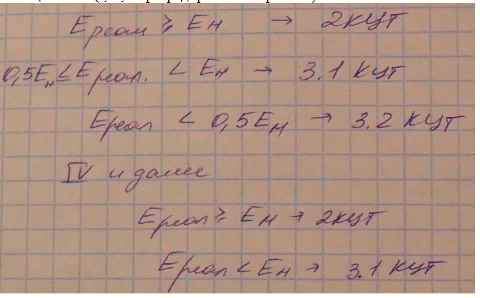 Eреал ≥ Eн → 2 КЦТ
0,5Eн ≤ Eреал. < Eн → 3.1 КЦТ
Eреал < 0,5Eн → 3.2 КЦТ
IV и далее
Eреал ≥ Eн → 2 КЦТ
Eреал < Eн → 3.1 КЦТ